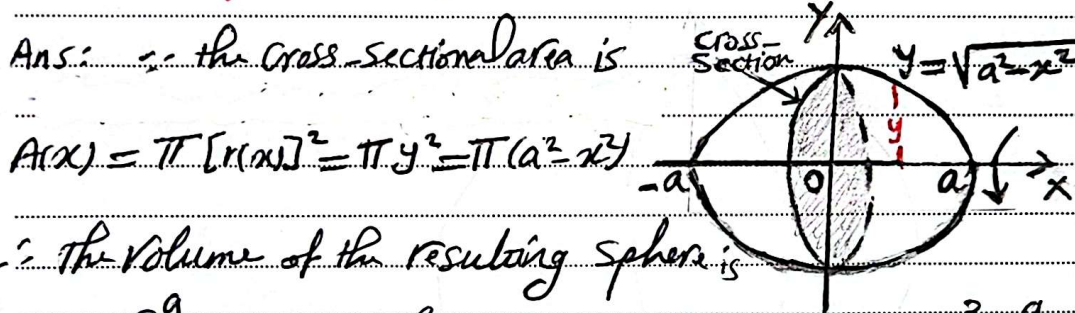 Ans: ∵ the Cross-Sectional area is
A(x) = π [r(x)]² = π y² = π (a² - x²)
∴ The Volume of the resulting Sphere is
Cross-
Section
Y
y = √a²-x²
y
-a
0
a
X